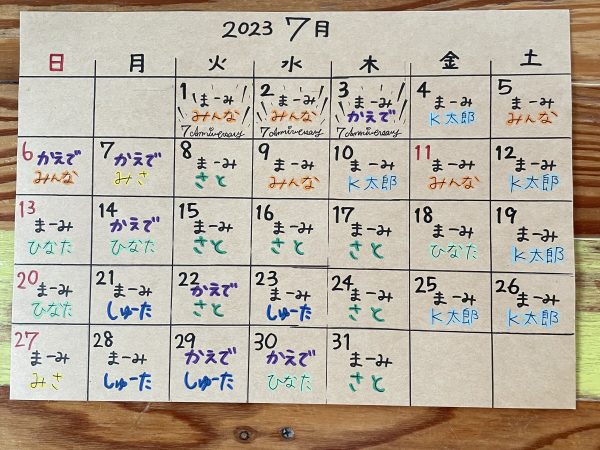 2023 7月
日 月 火 水 木 金 土
1 まーみ みんな 7 Anniversary
2 まーみ みんな 7 Anniversary
3 まーみ かえで 7 Anniversary
4 まーみ K太郎
5 まーみ みんな
6 かえで みんな
7 かえで みさ
8 まーみ さと
9 まーみ みんな
10 まーみ K太郎
11 まーみ みんな
12 まーみ K太郎
13 まーみ ひなた
14 かえで ひなた
15 まーみ さと
16 まーみ さと
17 まーみ さと
18 まーみ ひなた
19 まーみ K太郎
20 まーみ ひなた
21 まーみ しゅーた
22 かえで さと
23 まーみ しゅーた
24 まーみ さと
25 まーみ K太郎
26 まーみ K太郎
27 まーみ みさ
28 まーみ しゅーた
29 かえで しゅーた
30 かえで ひなた
31 まーみ さと